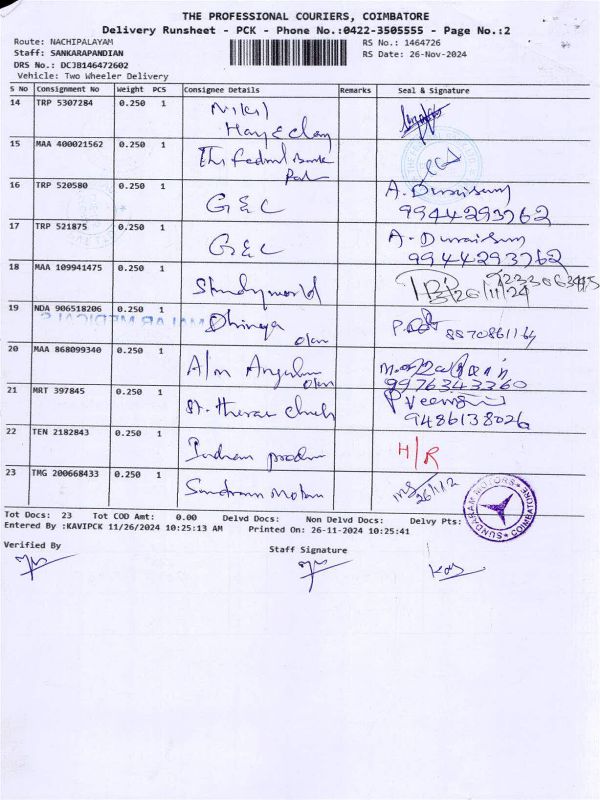 THE PROFESSIONAL COURIERS, COIMBATORE
Delivery Runsheet - PCK - Phone No.:0422-3505555 - Page No.:2
Route: NACHIPALAYAM RS No.: 1464726
Staff: SANKARAPANDIAN RS Date: 26-Nov-2024
DRS No.: DCJB146472602
Vehicle: Two Wheeler Delivery
S No Consignment No Weight PCS Consignee Details Remarks Seal & Signature
14 TRP 5307284 0.250 1 Nikil
15 MAA 400021562 0.250 1 The Fedral Bank
16 TRP 520580 0.250 1 G & C A. Duraisamy
9944293762
17 TRP 521875 0.250 1 G & C A. Duraisamy
9944293762
18 MAA 109941475 0.250 1 Study world 26/11/24
19 NDA 906518206 0.250 1
20 MAA 868099340 0.250 1 9976343360
21 MRT 397845 0.250 1 St. 9486138026
22 TEN 2182843 0.250 1 H/R
23 TMG 200668433 0.250 1 Sundram Motors 26/11/2
SUNDARAM MOTORS COIMBATORE
Tot Docs: 23 Tot COD Amt: 0.00 Delvd Docs: Non Delvd Docs: Delvy Pts:
Entered By :KAVIPCK 11/26/2024 10:25:13 AM Printed On: 26-11-2024 10:25:41
Verified By Staff Signature